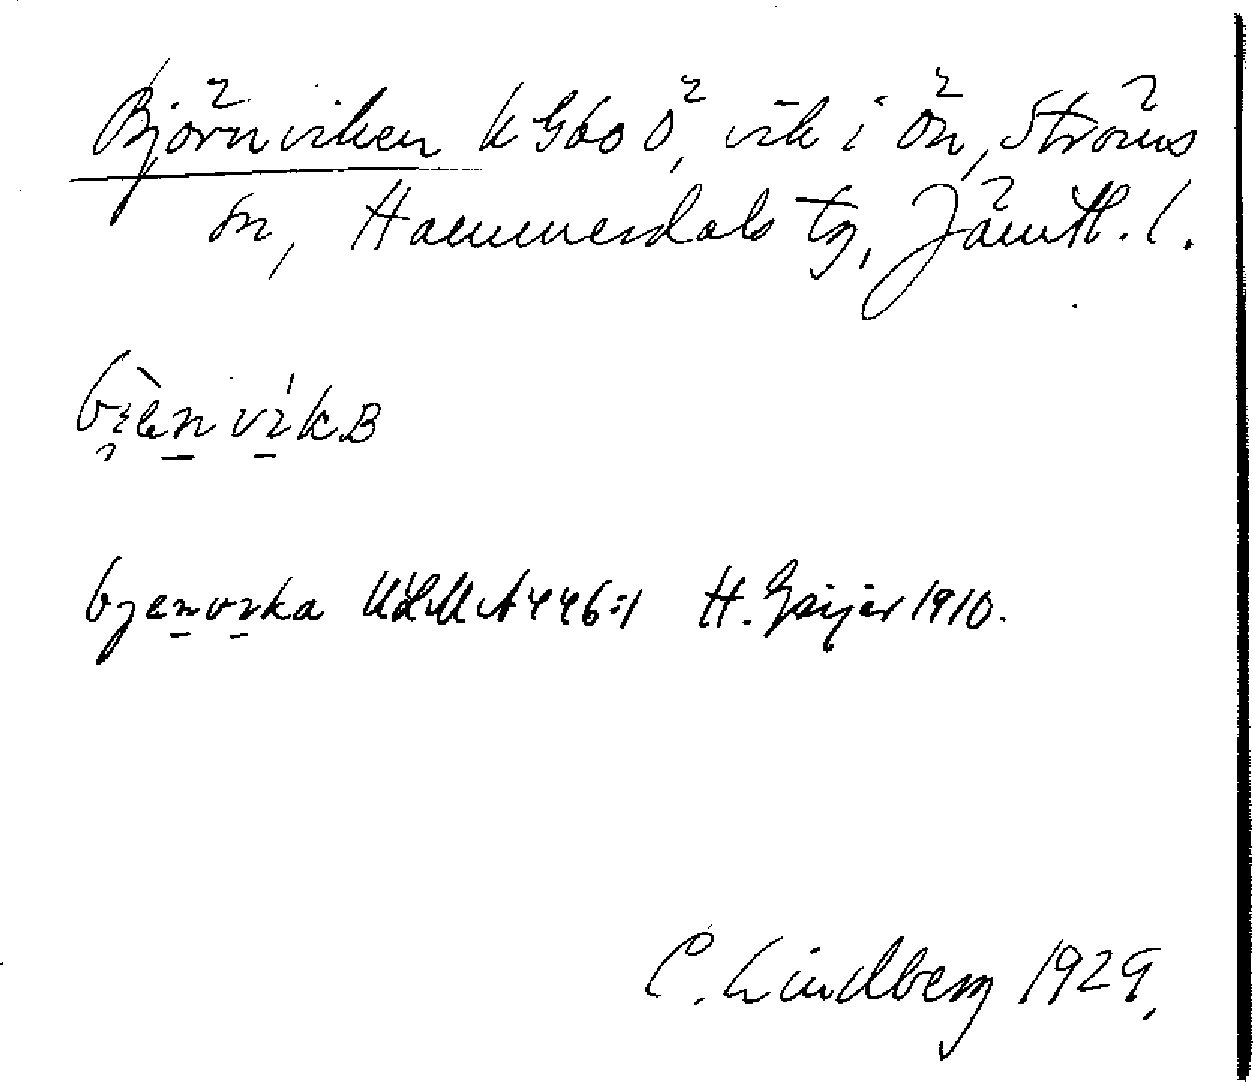 Björnviken k G60 Ö, vik i Ön, Ströms
sn, Hammerdals tg, Jämtl. l.
bjenvika ULMA 446:1 H. Geijer 1910.
C. Lindberg 1929.